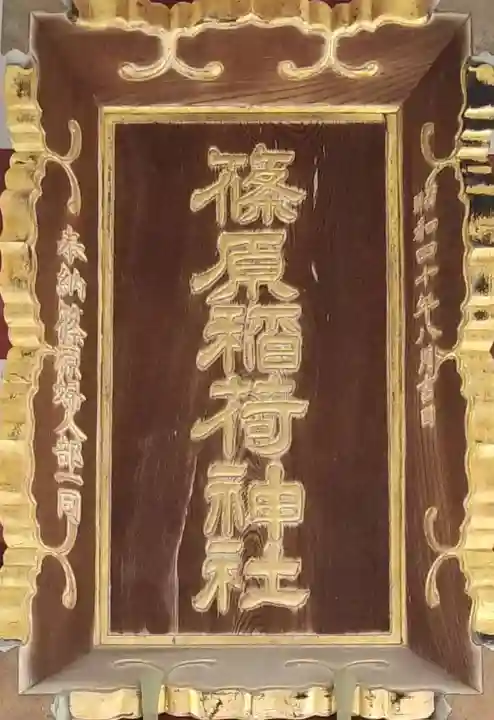 昭和四十年八月吉日
篠原稲荷神社
奉納篠原婦人部一同